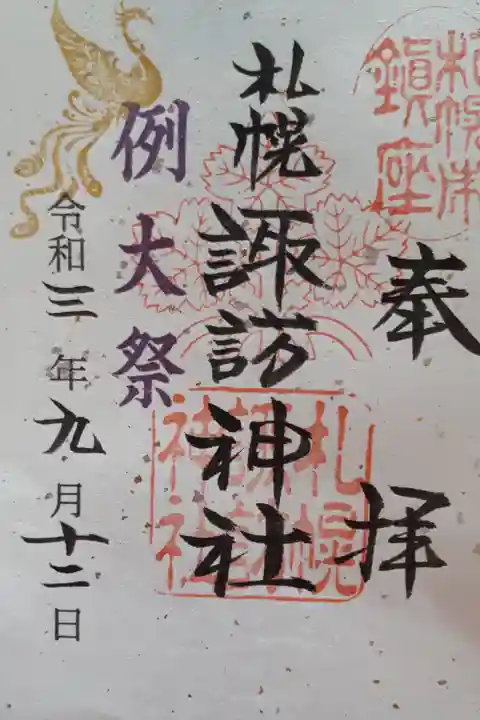 札幌市
鎮座
奉拝
札幌諏訪神社
札幌
諏訪
神社
例大祭
令和三年九月十二日